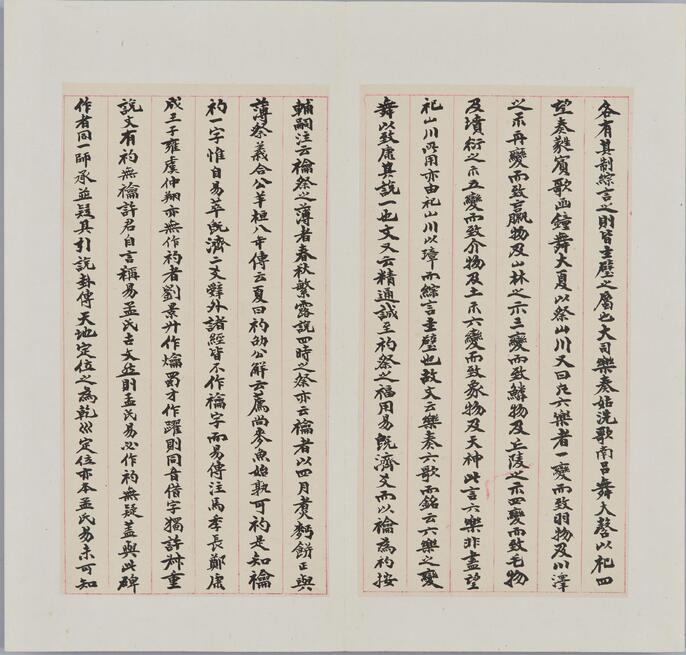 各有其制綜言之則皆圭璧之屬也大司樂奏姑洗歌南呂舞大磬以祀四
望奏蕤賓歌函鐘舞大夏以祭山川又曰凡六樂者一變而致羽物及川澤
之示再變而致臝物及山林之示三變而致鱗物及丘陵之示四變而致毛物
及墳衍之示五變而致介物及土示六變而致象物及天神此言六樂非盡望
祀山川所用亦由祀山川以璋而綜言圭璧也故文云樂奏六歌而銘云六樂之變
舞以致康其說一也文又云精通誠至礿祭之福用易既濟爻而以禴為礿按
輔嗣注云禴祭之薄者春秋繁露說四時之祭亦云禴者以四月煑麪餅正與
薄祭義合公羊桓八年傳云夏曰礿劭公解云薦尚麥魚始孰可礿是知禴
礿一字惟自易萃既濟二爻辭外諸經皆不作禴字而易傳注馬季長鄭康
成王子雍虞仲翔亦無作礿者劉景升作爚蜀才作躍則同音借字獨許叔重
說文有礿無禴許君自言稱易孟氏古文然則孟氏易必作礿無疑蓋與此碑
作者同一師承並疑其引說卦傳天地定位之為乾巛定位亦本孟氏易未可知